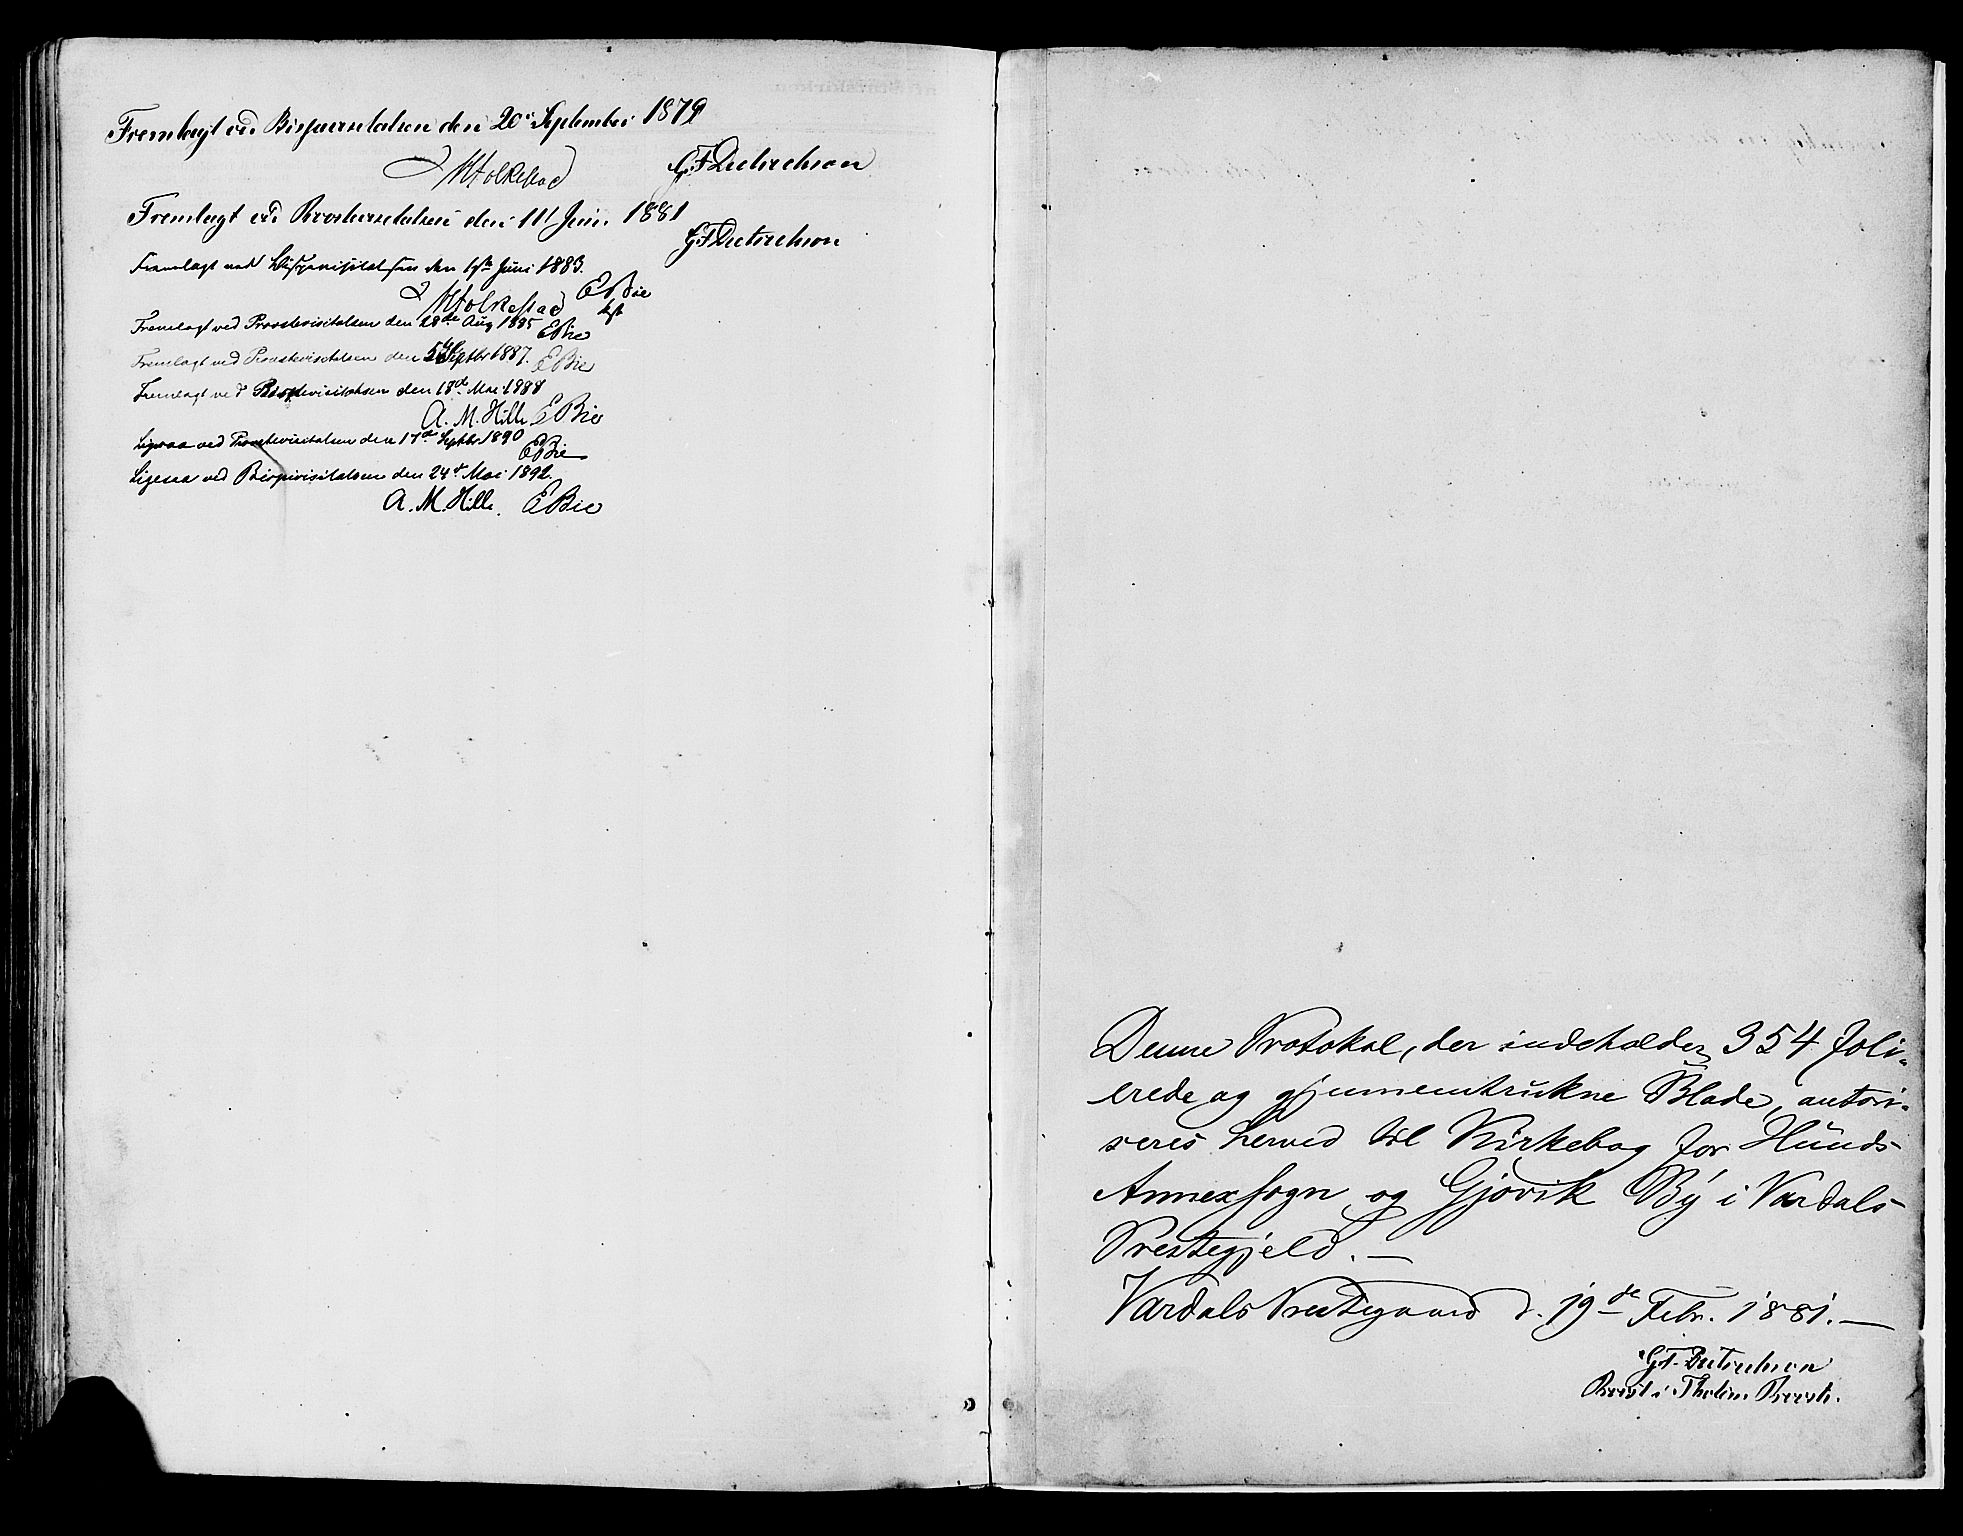 Fremlagt ved Bispevisitatsen den 20de September 1879
HHolkestad
GFDietrichson
Fremlagt ved Provstevisitatsen den 11te Juni 1881
GFDietrichson
Fremlagt ved Bispevisitatsen den Juni 1883.
HHolkestad
EBie
kst
Fremlagt ved Provstevisitatsen den 28de Aug 1885
EBie
Fremlagt ved Provstevisitatsen den 5te Septbr 1887.
EBie
Fremlagt ved Bispevisitatsen den 18de Mai 1888
A. M. Hille EBie
Ligesaa ved Provstevisitatsen den 17de Septbr 1890
EBie
Ligesaa ved Bispevisitatsen den 24de Mai 1892.
A. M. Hille. EBie
Denne Protokol, der indeholder 354 foli-
erede og gjennemtrukne Blade, autori-
seres herved til Kirkebog for Hunds
Annexsogn og Gjøvik By i Vardals
Prestegjeld. —
Vardals Prestegaard d. 19de Febr. 1881. —
GF. Dietrichson
Provst i Thotens Provsti.